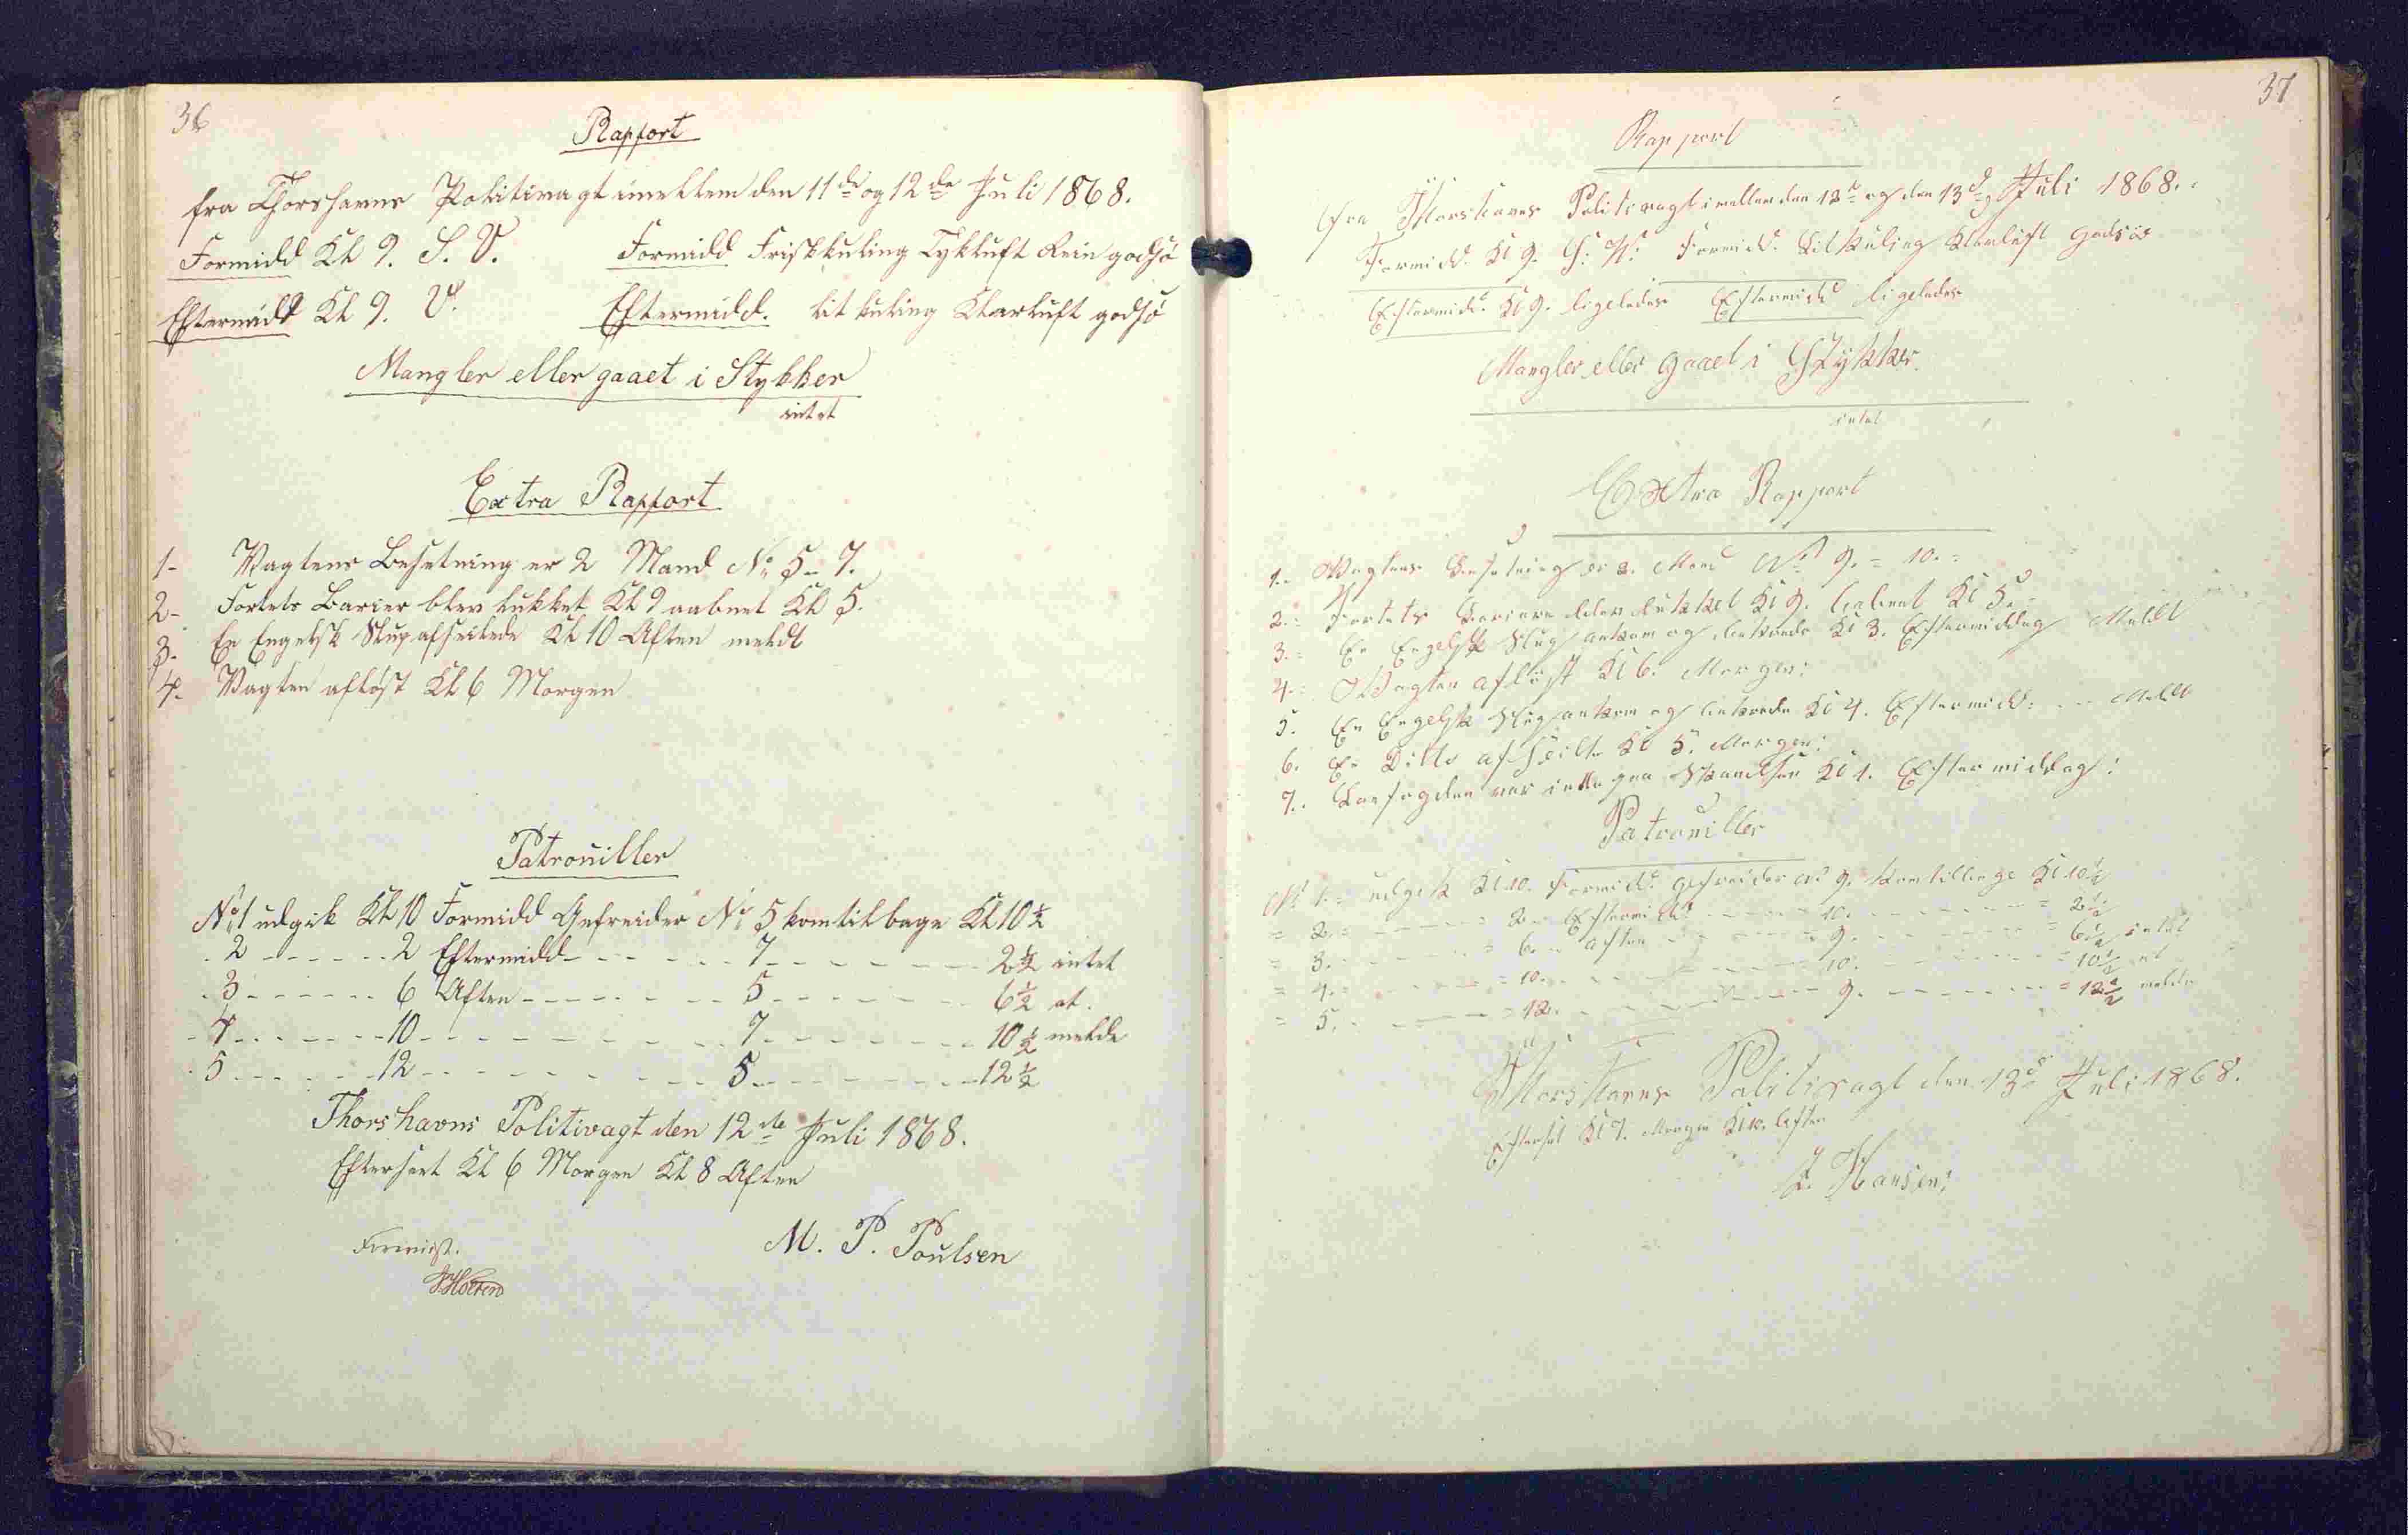 36
Rapport
fra Thorshavns Politivagt imellem den 11de og 12de Juli 1868.
Formidd Kl 9. S. V. Formidd Friskkuling Tykluft Rein godsø
Eftermidd Kl 9. V. Eftermidd. lit kuling Klarluft godsø
Mangler eller gaaet i Stykker
intet
Extra Rapport
1- Vagtens Besetning er 2 Mand No 5-7.
2- Fortets Barier blev lukket Kl 9 aabnet Kl 5.
3- En Engelsk Slup afseilede Kl 10 Aften meldt
4- Vagten afløst Kl 6 Morgen
Patrouiller
No 1 udgik Kl 10 Formidd Gefreider No 5 kom tilbage Kl 10 ½
- 2 - - - - - - 2 Eftermidd - - - - - 7 - - - - - - 2 ½ intet
- 3 - - - - - - 6 Aften - - - - - - 5 - - - - - - 6 ½ at
- 4 - - - - - - 10 - - - - - - - - 7 - - - - - - 10 ½ melde
- 5 - - - - - - 12 - - - - - - - - 5 - - - - - - 12 ½
Thorshavns Politivagt den 12te Juli 1868.
Efterseet Kl 6 Morgen Kl 8 Aften
M. P. Poulsen
Foreviist.
HHolten
37
Rapport
fra Thorshavns Politivagt imellem den 12d og den 13d Juli 1868.
Formidd. Kl 9. Formidd. Litkuling Klarluft Godsøe
Eftermidd. Kl 9. ligeledes Eftermidd ligeledes
Mangler eller gaaet i Stykker.
intet
Extra Rapport
1.- Vagtens Besetning er 2. Mand No 9. = 10. =
2.= Fortets Bariere blev lukket Kl 9. aabent Kl 5. -
3.= En Engelsk Slup ankom og ankrede Kl 3. Eftermiddag Meldt
4.= Vagten afløst Kl 6. Morgen:
5. En Engelsk Slup ankom og ankrede Kl 4. Eftermidd: - - Meldt
6. En Ditto afseilte Kl 5. Morgen:
7.. var Skandsen Kl 1. Eftermiddag:
Patrouiller
No 1.= udgik Kl 10. Formidd. Gefreider No 9. kom tilbage Kl 10 ½
= 2.= - - - - = 2. - Eftermidd - - - - 10. - - - - - = 2 ½
= 3. - - - - - = 6. - Aften - - - - - 9. - - - - - = 6 ½ intet
= 4.= - - - - = 10. - - - - - - - 10. - - - - - = 10 ½ at
= 5. - - - - - = 12. - - - - - - - 9. - - - - - = 12 ½ melde
Thorshavns Politivagt den 13d Juli 1868.
Efterset Kl 7. Morgen Kl 10. Aften
J. Hansen: